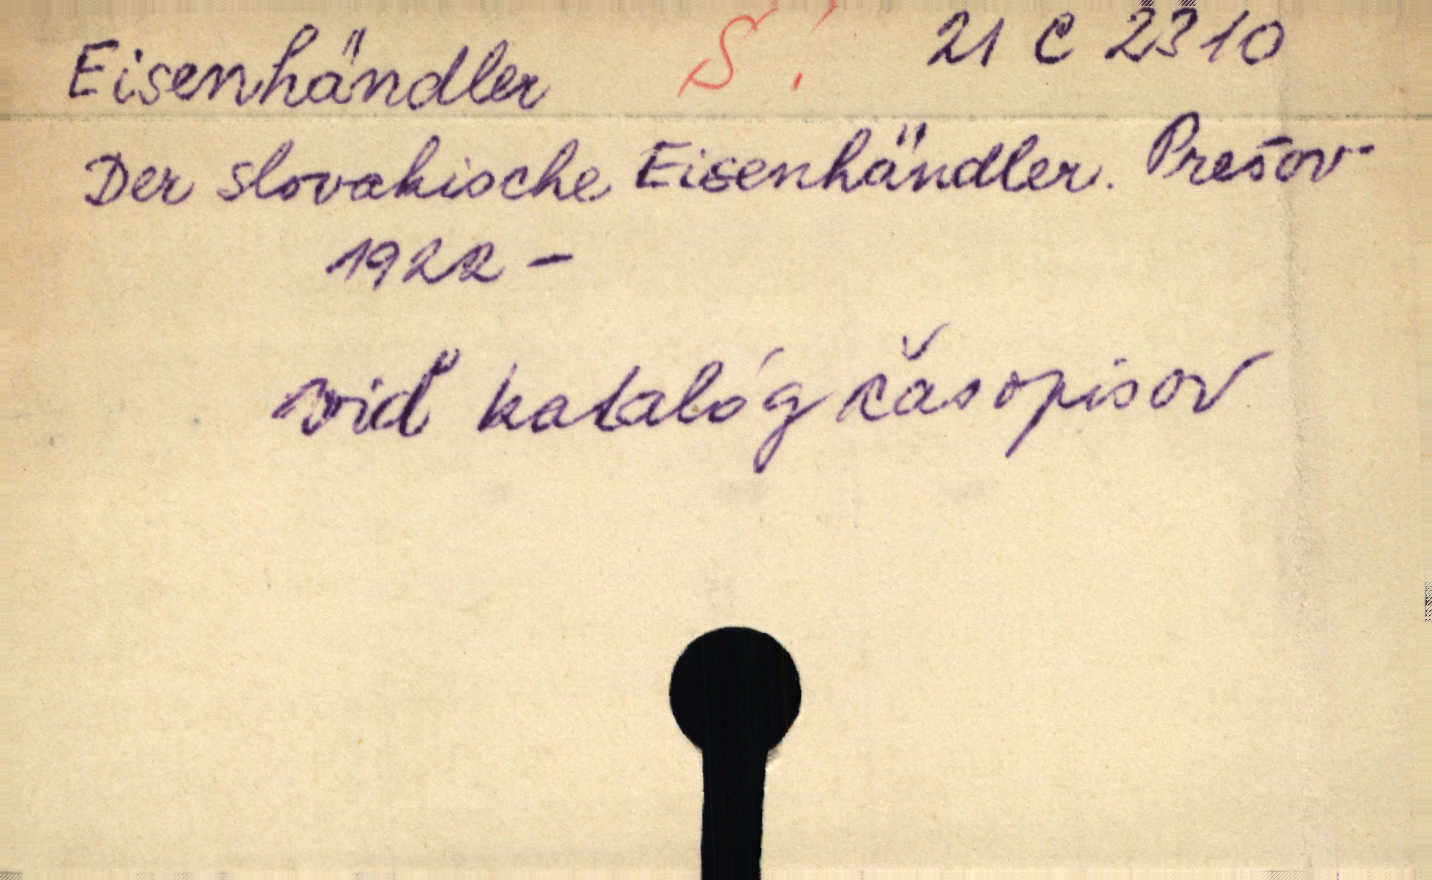 Eisenhändler S! 21 C 2310
Der slovakische Eisenhändler. Prešov
1922 -
viď katalóg časopisov